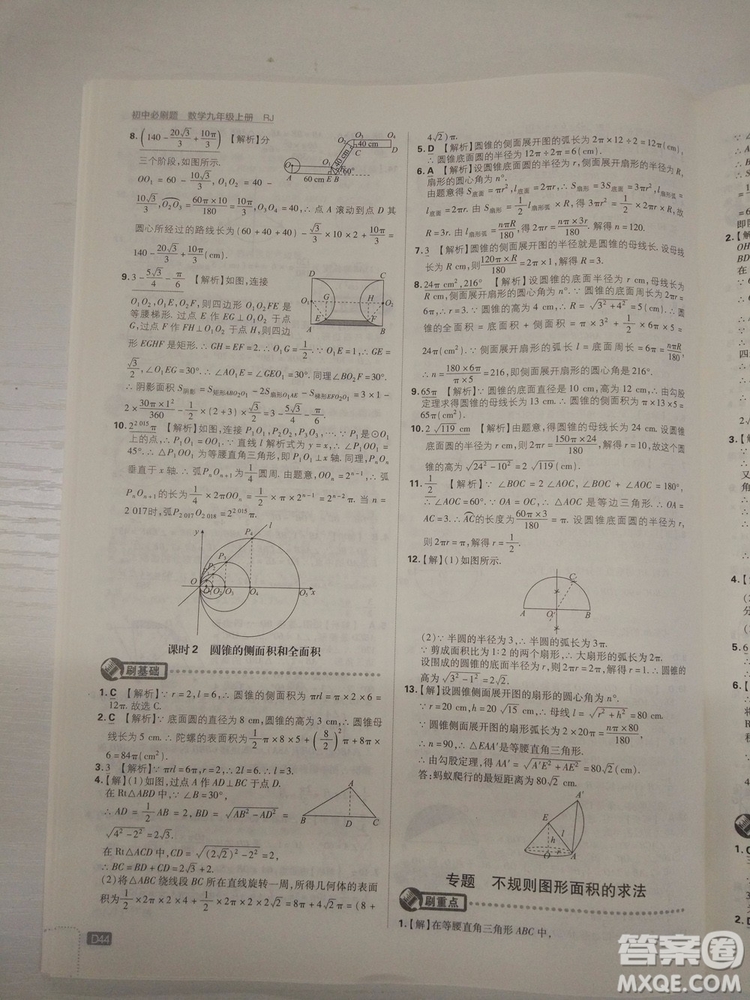 初中必刷题 数学九年级上册 RJ
8. (140 - 20√3/3 + 10π/3) 【解析】分
三个阶段,如图所示.
OO₁ = 60 - 10√3/3, O₁O₂ = 40 -
10√3/3, O₂O₃ = 60π×10/180 = 10π/3, ∴ 点 A 滚动到点 D 其
圆心所经过的路线长为 (60 + 40 + 40) - √3/3 × 10 × 2 +
10π/3 = 140 - 20√3/3 + 10π/3 (cm).
9. 3 - 5√3/4 - π/6 【解析】如图,连接
O₁O₂, O₁E, O₂F, 则四边形 O₁O₂FE 是
等腰梯形. 过点 E 作 EG⊥O₁O₂ 于点
G, 过点 F 作 FH⊥O₁O₂ 于点 H, 则四边
形 EGHF 是矩形. ∴ GH = EF = 2. ∴ O₁G = 1/2. ∴ GE =
√3/2, ∴ O₁EG = 30°. ∴ ∠AO₁E = ∠GEO₁ = 30°. 同理 ∠BO₂F = 30°.
10. 2^2 015 π 【解析】如图,连接 P₁O₁, P₂O₂, P₃O₃, … ∵ P₁ 是⊙O₁
上的点, ∴ P₁O₁ = OO₁. ∵ 直线 l 解析式为 y = x, ∴ ∠P₁OO₁ =
45°. ∴ △P₁OO₁ 为等腰直角三角形, 即 P₁O₁⊥x 轴. 同理, PₙOₙ
垂直于 x 轴. ∴ 弧 PₙOₙ₊₁ 为 1/4 圆周. 由题意, OOₙ = 2^(n-1). ∴ PₙOₙ₊₁
的长为 1/4 × 2πOOₙ = 1/2 π × 2^(n-1) = 2^(n-2) π. 当 n =
2 017 时, 弧 P₂ ₀₁₇O₂ ₀₁₈ = 2^2 015 π.
课时2 圆锥的侧面积和全面积
刷基础
1. C 【解析】∵ r = 2, l = 6, ∴ 圆锥的侧面积为 πrl = π × 2 × 6 =
12π. 故选 C.
2. C 【解析】∵ 底面圆的直径为 8 cm, 圆锥的高为 3 cm, ∴ 圆锥母
线长为 5 cm. ∴ 陀螺的表面积为 1/2 π × 8 × 5 + (8/2)² π + 8π ×
6 = 84π(cm²).
3. 3 【解析】∵ πrl = 6π, r = 2, ∴ 2l = 6. ∴ l = 3.
4. 【解】(1) 如图, 过点 A 作 AD⊥BC 于点 D.
在 Rt△ABD 中, ∵ ∠B = 30°,
∴ AD = 1/2 AB = 1/2 × 4 = 2, BD = √(AB² - AD²) =
√(4² - 2²) = 2√3.
在 Rt△ACD 中, CD = √((2√2)² - 2²) = 2,
∴ BC = BD + CD = 2√3 + 2.
(2) 将△ABC 绕线段 BC 所在直线旋转一周, 所得几何体的表面
积为 1/2 × 4π × 4 + 1/2 × 4π × 2√2 = 8π + 4√2π = (8 +
D44
4√2)π.
5. D 【解析】圆锥的侧面展开图的弧长为 2π × 12 ÷ 2 = 12π(cm),
∴ 圆锥底面圆的半径为 12π ÷ 2π = 6(cm).
6. A 【解析】设圆锥的底面圆的半径为 r, 母线长为 R, 侧面展开
扇形的圆心角为 n°.
由题意得 S底面 = πr², l底面 = 2πr. ∴ S扇形 = 3S底面 = 3πr², l扇形弧 =
l底面 = 2πr. 由 S扇形 = 1/2 l扇形弧 × R, 得 3πr² = 1/2 × 2πr × R, 故
R = 3r. 由 l扇形弧 = nπR/180, 得 2πr = nπ×3r/180. 解得 n = 120.
7. 3 【解析】∵ 圆锥的侧面展开图的半径就是圆锥的母线长. 设母线长为
R cm, 则 120π×R/180 = 2π, 解得 R = 3.
8. 24π cm², 216° 【解析】设圆锥的底面半径为 r cm, 母线长为
R cm, 侧面展开扇形的圆心角为 n°. ∵ 圆锥的底面周长为 2πr =
6π, ∴ r = 3. ∵ 圆锥的高为 4 cm, ∴ R = √(3² + 4²) = 5(cm). ∴ 圆
锥的全面积 = 底面积 + 侧面积 = π × 3² + 1/2 × 6π × 5 =
24π(cm²). ∵ 侧面展开扇形的弧长 l = 底面周长 = 6π = nπR/180,
∴ n = 180×6π/π×5 = 216, 即侧面展开扇形的圆心角是 216°.
9. 65π 【解析】∵ 圆锥的底面直径是 10 cm, 高为 12 cm, ∴ 由勾股
定理求得圆锥的母线长为 13 cm. ∴ 圆锥的侧面积 = π × 13 × 5 =
65π(cm²).
10. 2√119 cm 【解析】由题意可得圆锥的母线长为 24 cm. 设圆锥
底面圆的半径为 r cm, 则 2πr = 150π×24/180, 解得 r = 10. ∴
圆锥的高为 √(24² - 10²) = 2√119 (cm).
11. 1/2 【解析】∵ ∠BOC = 2∠AOC, ∠BOC + ∠AOC = 180°,
∴ ∠AOC = 60°. ∵ OA = OC, ∴ △AOC 是等边三角形. ∴ OA =
AC = 3. ∴ AC 的长度为 60π×3/180 = π. ∵ 圆锥底面圆的半径为 r,
∴ 2πr = π, 解得 r = 1/2.
12. 【解】(1) 如图所示.
(2) ∵ 半圆的半径为 3, ∴ 半圆的弧长为 3π.
∵ 剪成面积比为 1:2 的两个扇形, ∴ 大扇形的弧长为 2π.
设围成的圆锥的底面圆的半径为 r, 则 2πr = 2π, 解得 r = 1.
∴ 圆锥的高为 √(3² - 1²) = 2√2.
13. 【解】设圆锥侧面展开图的扇形的圆心角为 n°.
∵ r = 20 cm, h = 20√15 cm, ∴ 母线 l = √(r² + h²) = 80 cm.
∵ 圆锥侧面展开图的扇形的弧长为 2 × 20π = nπ×80/180,
∴ n = 90, ∴ △EAA′是等腰直角三角形.
由勾股定理得 AA′ = √(A′E² + AE²) = 80√2 cm.
答: 蚂蚁爬行的最短距离为 80√2 cm.
专题 不规则图形面积的求法
刷重点
1. 【解】在等腰直角三角形 ABC 中,
答案圈
MXQE.COM